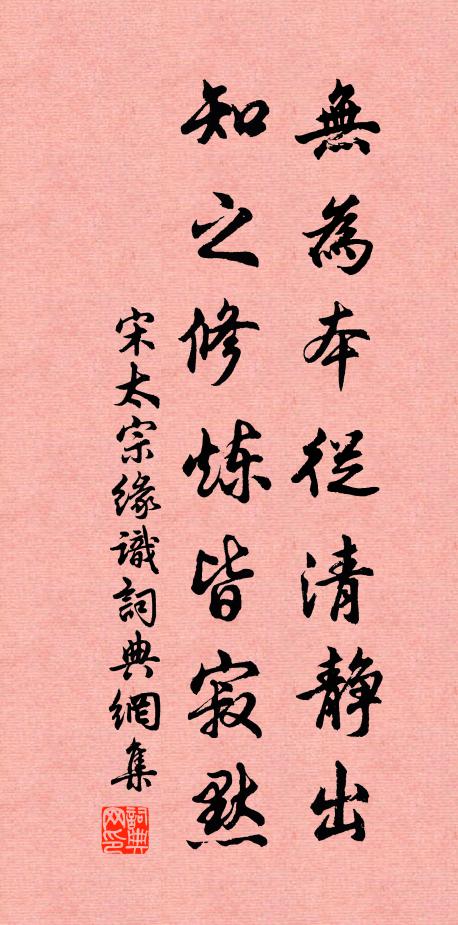 無為本從清靜出
知之修炼皆寂默
宋太宗缘識詞典網集
詞典網印